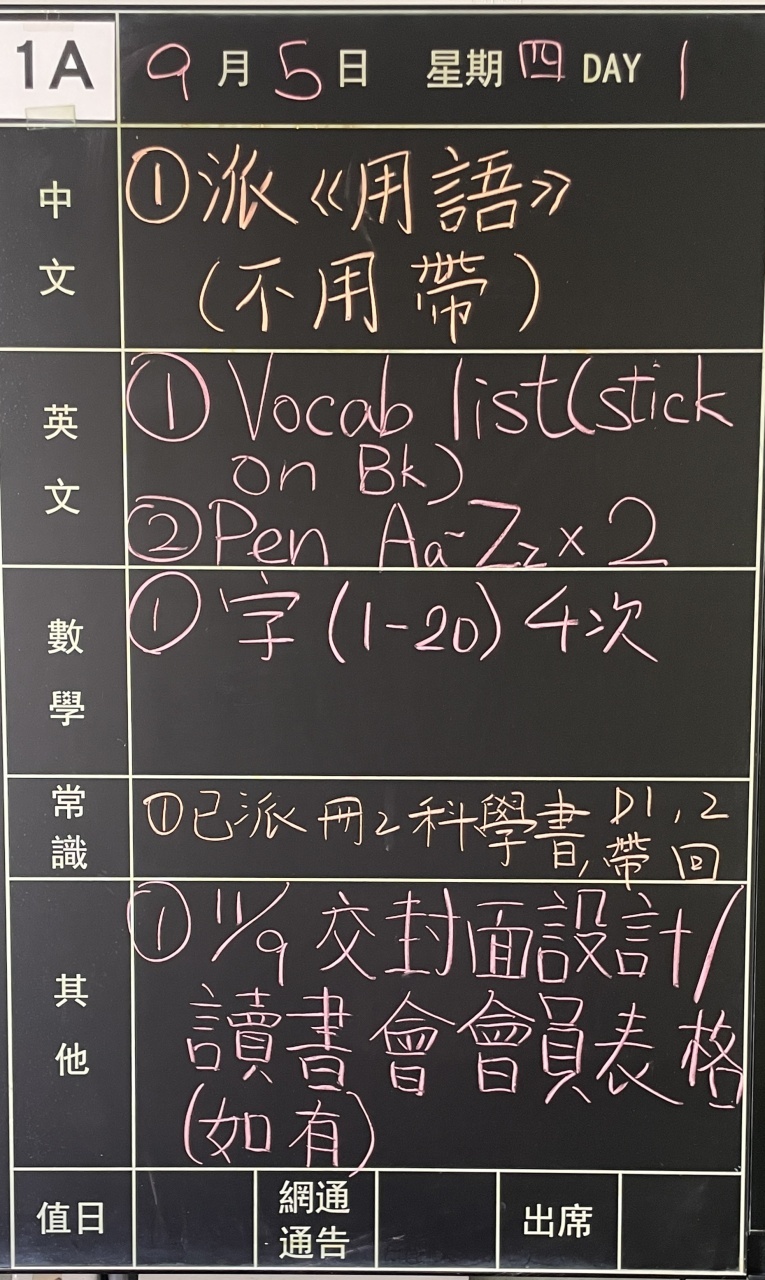 1A 9月5日 星期四 DAY 1
中文
①派《用語》
(不用帶)
英文
① Vocab list(stick
on Bk)
②Pen Aa-Zz×2
數學
①字(1-20)4次
常識
①已派冊2科學書, D1,2
帶回
其他
①11/9交封面設計/
讀書會會員表格
(如有)
值日 網通
通告 出席